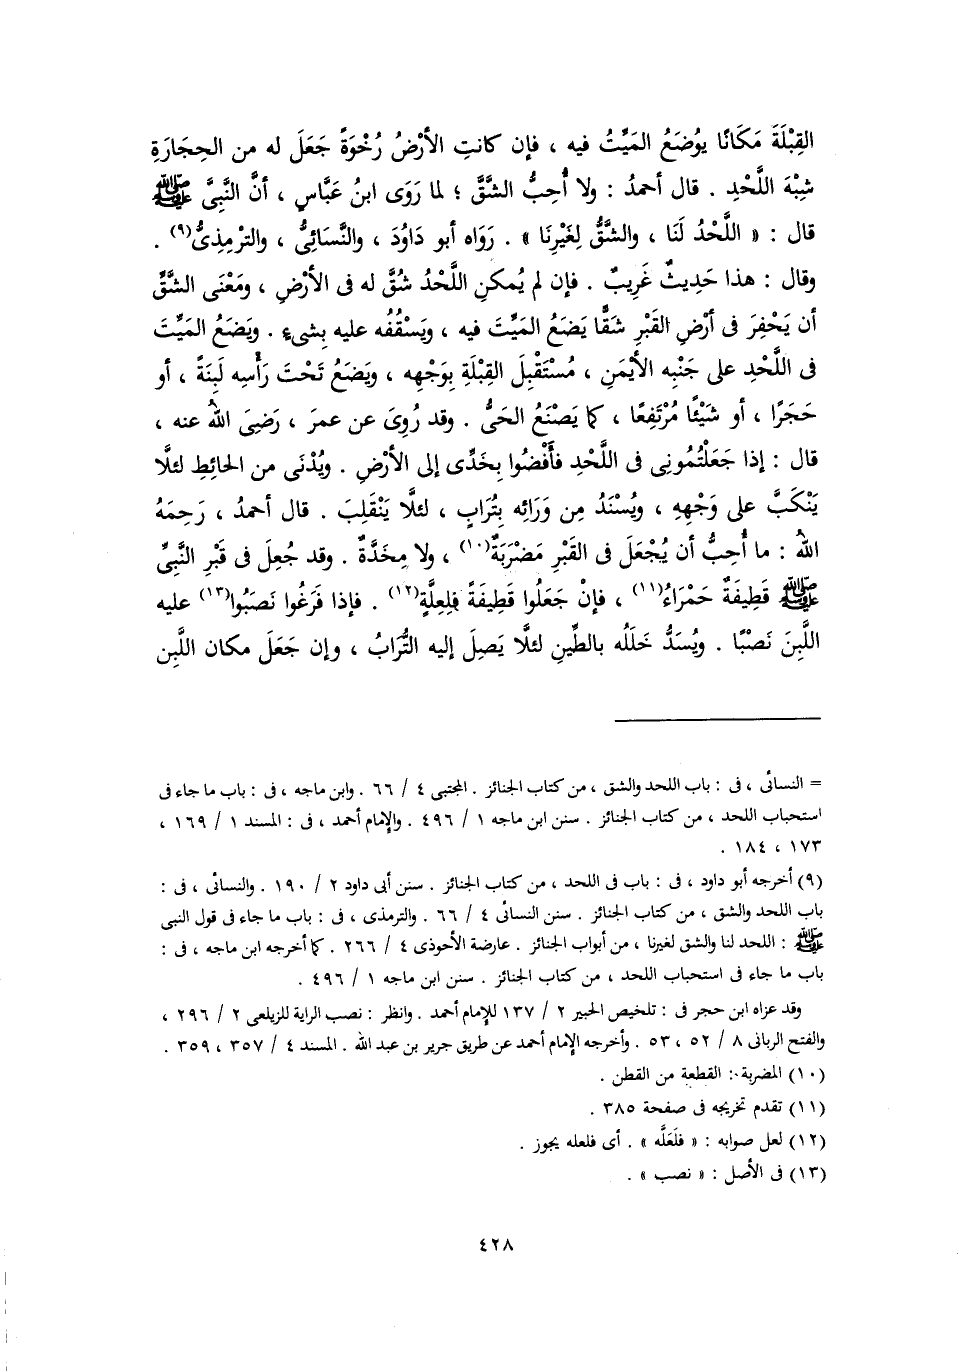 القِبْلَةَ مَكَانًا يُوضَعُ المَيِّتُ فيه ، فإن كانتِ الأرْضُ رُخْوَةً جَعَلَ له من الحِجارَةِ
شِبْهَ اللَّحْدِ . قال أحمدُ : ولا أُحِبُّ الشَّقَّ ؛ لما رَوَى ابنُ عَبَّاسٍ ، أنَّ النَّبِىَّ ﷺ
قال : « اللَّحْدُ لَنَا ، والشَّقُّ لِغَيْرِنَا » . رَوَاه أبو دَاوُدَ ، والنَّسائِىُّ ، والتِّرْمِذِىُّ(٩) .
وقال : هذا حَدِيثٌ غَرِيبٌ . فإن لم يُمكنِ اللَّحْدُ شُقَّ له فى الأرْضِ ، ومَعْنَى الشَّقِّ
أن يَحْفِرَ فى أرْضِ القَبْرِ شَقًّا يَضَعُ المَيِّتَ فيه ، ويَسْقُفُه عليه بِشىءٍ . ويَضَعُ المَيِّتَ
فى اللَّحْدِ على جَنْبِه الأيْمَنِ ، مُسْتَقْبِلَ القِبْلَةِ بِوَجْهِه ، ويَضَعُ تَحْتَ رَأْسِه لَبِنَةً ، أو
حَجَرًا ، أو شَيْئًا مُرْتَفِعًا ، كما يَصْنَعُ الحَىُّ . وقد رُوِىَ عن عمرَ ، رَضِىَ اللهُ عنه ،
قال : إذا جَعَلْتُمُونِى فى اللَّحْدِ فأَفْضُوا بِخَدِّى إلى الأرْضِ . ويُدْنَى من الحائِطِ لئلَّا
يَنْكَبَّ على وَجْهِهِ ، ويُسْنَدُ مِن وَرَائِه بِتُرَابٍ ، لئلَّا يَنْقَلِبَ . قال أحمدُ ، رَحِمَهُ
اللهُ : ما أُحِبُّ أن يُجْعَلَ فى القَبْرِ مَضْرَبَةٌ(١٠) ، ولا مِخَدَّةٌ . وقد جُعِلَ فى قَبْرِ النَّبِىِّ
ﷺ قَطِيفَةٌ حَمْرَاءُ(١١) ، فإنْ جَعَلُوا قَطِيفَةً فلِعِلَّةٍ(١٢) . فإذا فَرَغُوا نَصَبُوا(١٣) عليه
اللَّبِنَ نَصْبًا . ويُسَدُّ خَلَلُه بالطِّينِ لئلَّا يَصِلَ إليه التُّرَابُ ، وإن جَعَلَ مكان اللَّبِن
= النسائى ، فى : باب اللحد والشق ، من كتاب الجنائز . المجتبى ٤ / ٦٦ . وابن ماجه ، فى : باب ما جاء فى
استحباب اللحد ، من كتاب الجنائز . سنن ابن ماجه ١ / ٤٩٦ . والإمام أحمد ، فى : المسند ١ / ١٦٩ ،
١٧٣ ، ١٨٤ .
(٩) أخرجه أبو داود ، فى : باب فى اللحد ، من كتاب الجنائز . سنن أبى داود ٢ / ١٩٠ . والنسائى ، فى :
باب اللحد والشق ، من كتاب الجنائز . سنن النسائى ٤ / ٦٦ . والترمذى ، فى : باب ما جاء فى قول النبى
ﷺ : اللحد لنا والشق لغيرنا ، من أبواب الجنائز . عارضة الأحوذى ٤ / ٢٦٦ . كما أخرجه ابن ماجه ، فى :
باب ما جاء فى استحباب اللحد ، من كتاب الجنائز . سنن ابن ماجه ١ / ٤٩٦ .
وقد عزاه ابن حجر فى : تلخيص الحبير ٢ / ١٣٧ للإمام أحمد . وانظر : نصب الراية للزيلعى ٢ / ٢٩٦ ،
والفتح الربانى ٨ / ٥٢ ، ٥٣ . وأخرجه الإمام أحمد عن طريق جرير بن عبد الله . المسند ٤ / ٣٥٧ ، ٣٥٩ .
(١٠) المضربة : القطعة من القطن .
(١١) تقدم تخريجه فى صفحة ٣٨٥ .
(١٢) لعل صوابه : « فلَعَلَّه » . أى فلعله يجوز .
(١٣) فى الأصل : « نصب » .
٤٢٨